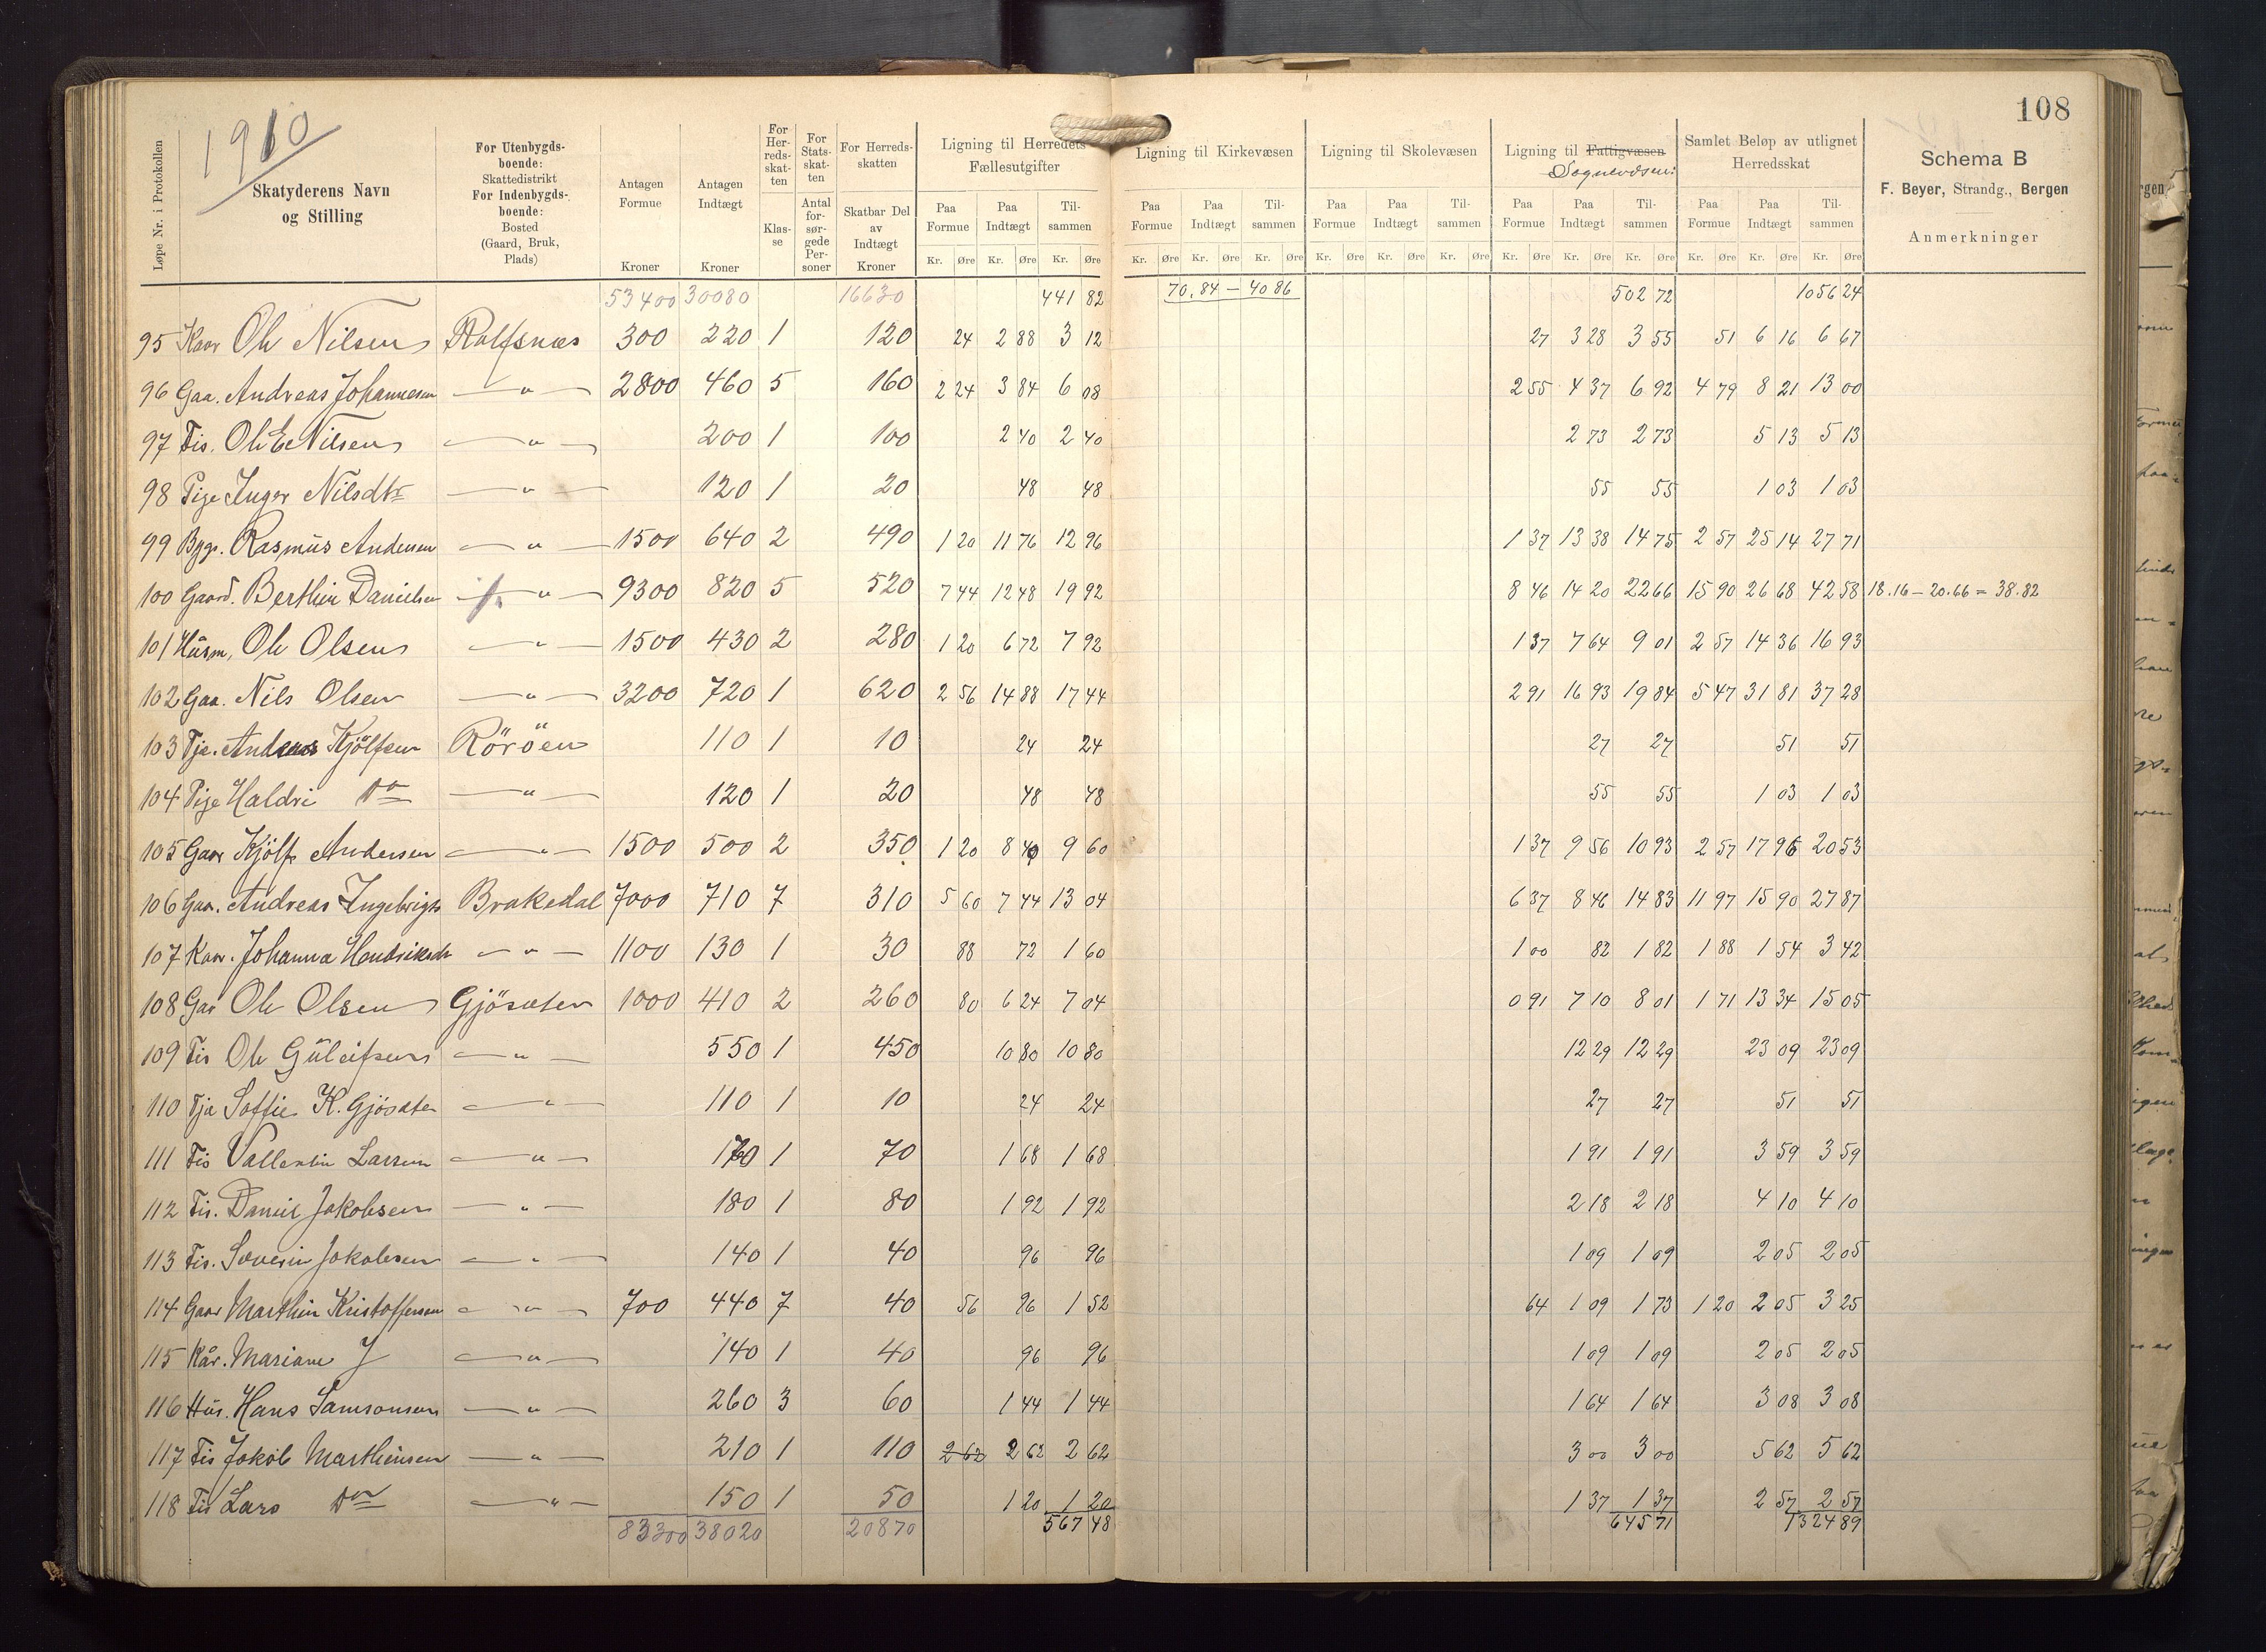 1910
108
Løpe Nr. i Protokollen
Skatyderens Navn og Stilling
For Utenbygdsboende: Skattedistrikt For Indenbygdsboende: Bosted (Gaard, Bruk, Plads)
Antagen Formue Kroner
Antagen Indtægt Kroner
For Herredsskatten Klasse
For Statsskatten Antal forsørgede Personer
For Herredsskatten Skatbar Del av Indtægt Kroner
Ligning til Herredets Fællesutgifter
Paa Formue Paa Indtægt Tilsammen
Kr. Øre Kr. Øre Kr. Øre
Ligning til Kirkevæsen
Paa Formue Paa Indtægt Tilsammen
Kr. Øre Kr. Øre Kr. Øre
Ligning til Skolevæsen
Paa Formue Paa Indtægt Tilsammen
Kr. Øre Kr. Øre Kr. Øre
Ligning til Fattigvæsen
Sognevæsen:
Paa Formue Paa Indtægt Tilsammen
Kr. Øre Kr. Øre Kr. Øre
Samlet Beløp av utlignet Herredsskat
Paa Formue Paa Indtægt Tilsammen
Kr. Øre Kr. Øre Kr. Øre
Schema B
F. Beyer, Strandg., Bergen
Anmerkninger
53400 30080 16630 441 82 70,84 — 40 86 502 72 1056 24
95 Kaar Ole Nilsen Rolfsnæs 300 220 1 120 24 2 88 3 12 27 3 28 3 55 51 6 16 6 67
96 Gaa. Andreas Johannesen — " — 2800 460 5 160 2 24 3 84 6 08 2 55 4 37 6 92 4 79 8 21 13 00
97 Fis. Ole E Nilsen — " — 200 1 100 2 40 2 40 2 73 2 73 5 13 5 13
98 Pige Inger Nilsdtr — " — 120 1 20 48 48 55 55 1 03 1 03
99 Byg. Rasmus Andersen — " — 1500 640 2 490 1 20 11 76 12 96 1 37 13 38 14 75 2 57 25 14 27 71
100 Gaard. Berthin Danielsen — " — 9300 820 5 520 7 44 12 48 19 92 8 46 14 20 22 66 15 90 26 68 42 58 18.16 — 20.66 = 38.82
101 Husm. Ole Olsen — " — 1500 430 2 280 1 20 6 72 7 92 1 37 7 64 9 01 2 57 14 36 16 93
102 Gaa. Nils Olsen — " — 3200 720 1 620 2 56 14 88 17 44 2 91 16 93 19 84 5 47 31 81 37 28
103 Tje. Anders Kjölfsen Röröen 110 1 10 24 24 27 27 51 51
104 Pige Haldri Do — " — 120 1 20 48 48 55 55 1 03 1 03
105 Gaar Kjölf Andersen — " — 1500 500 2 350 1 20 8 40 9 60 1 37 9 56 10 93 2 57 17 96 20 53
106 Gaa. Andreas Ingebrigts Brakedal 7000 710 7 310 5 60 7 44 13 04 6 37 8 46 14 83 11 97 15 90 27 87
107 Kaar. Johanna Hendriksdr — " — 1100 130 1 30 88 72 1 60 1 00 82 1 82 1 88 1 54 3 42
108 Gaa Ole Olsen Gjösæter 1000 410 2 260 80 6 24 7 04 0 91 7 10 8 01 1 71 13 34 15 05
109 Fis Ole Guleifsen — " — 550 1 450 10 80 10 80 12 29 12 29 23 09 23 09
110 Tje Soffie K. Gjösæter — " — 110 1 10 24 24 27 27 51 51
111 Fis Vallentin Larsen — " — 170 1 70 1 68 1 68 1 91 1 91 3 59 3 59
112 Fis. Daniel Jakobsen — " — 180 1 80 1 92 1 92 2 18 2 18 4 10 4 10
113 Fis. Severin Jakobsen — " — 140 1 40 96 96 1 09 1 09 2 05 2 05
114 Gaar Marthin Kristoffersen — " — 700 440 7 40 56 96 1 52 64 1 09 1 73 1 20 2 05 3 25
115 Kår. Mariane J — " — 140 1 40 96 96 1 09 1 09 2 05 2 05
116 Hus. Hans Samsonsen — " — 260 3 60 1 44 1 44 1 64 1 64 3 08 3 08
117 Fis Jakob Marthinsen — " — 210 1 110 2 62 2 62 2 62 3 00 3 00 5 62 5 62
118 Fis Lars Do — " — 150 1 50 1 20 1 20 1 37 1 37 2 57 2 57
83300 38020 20870 567 48 645 71 1324 89